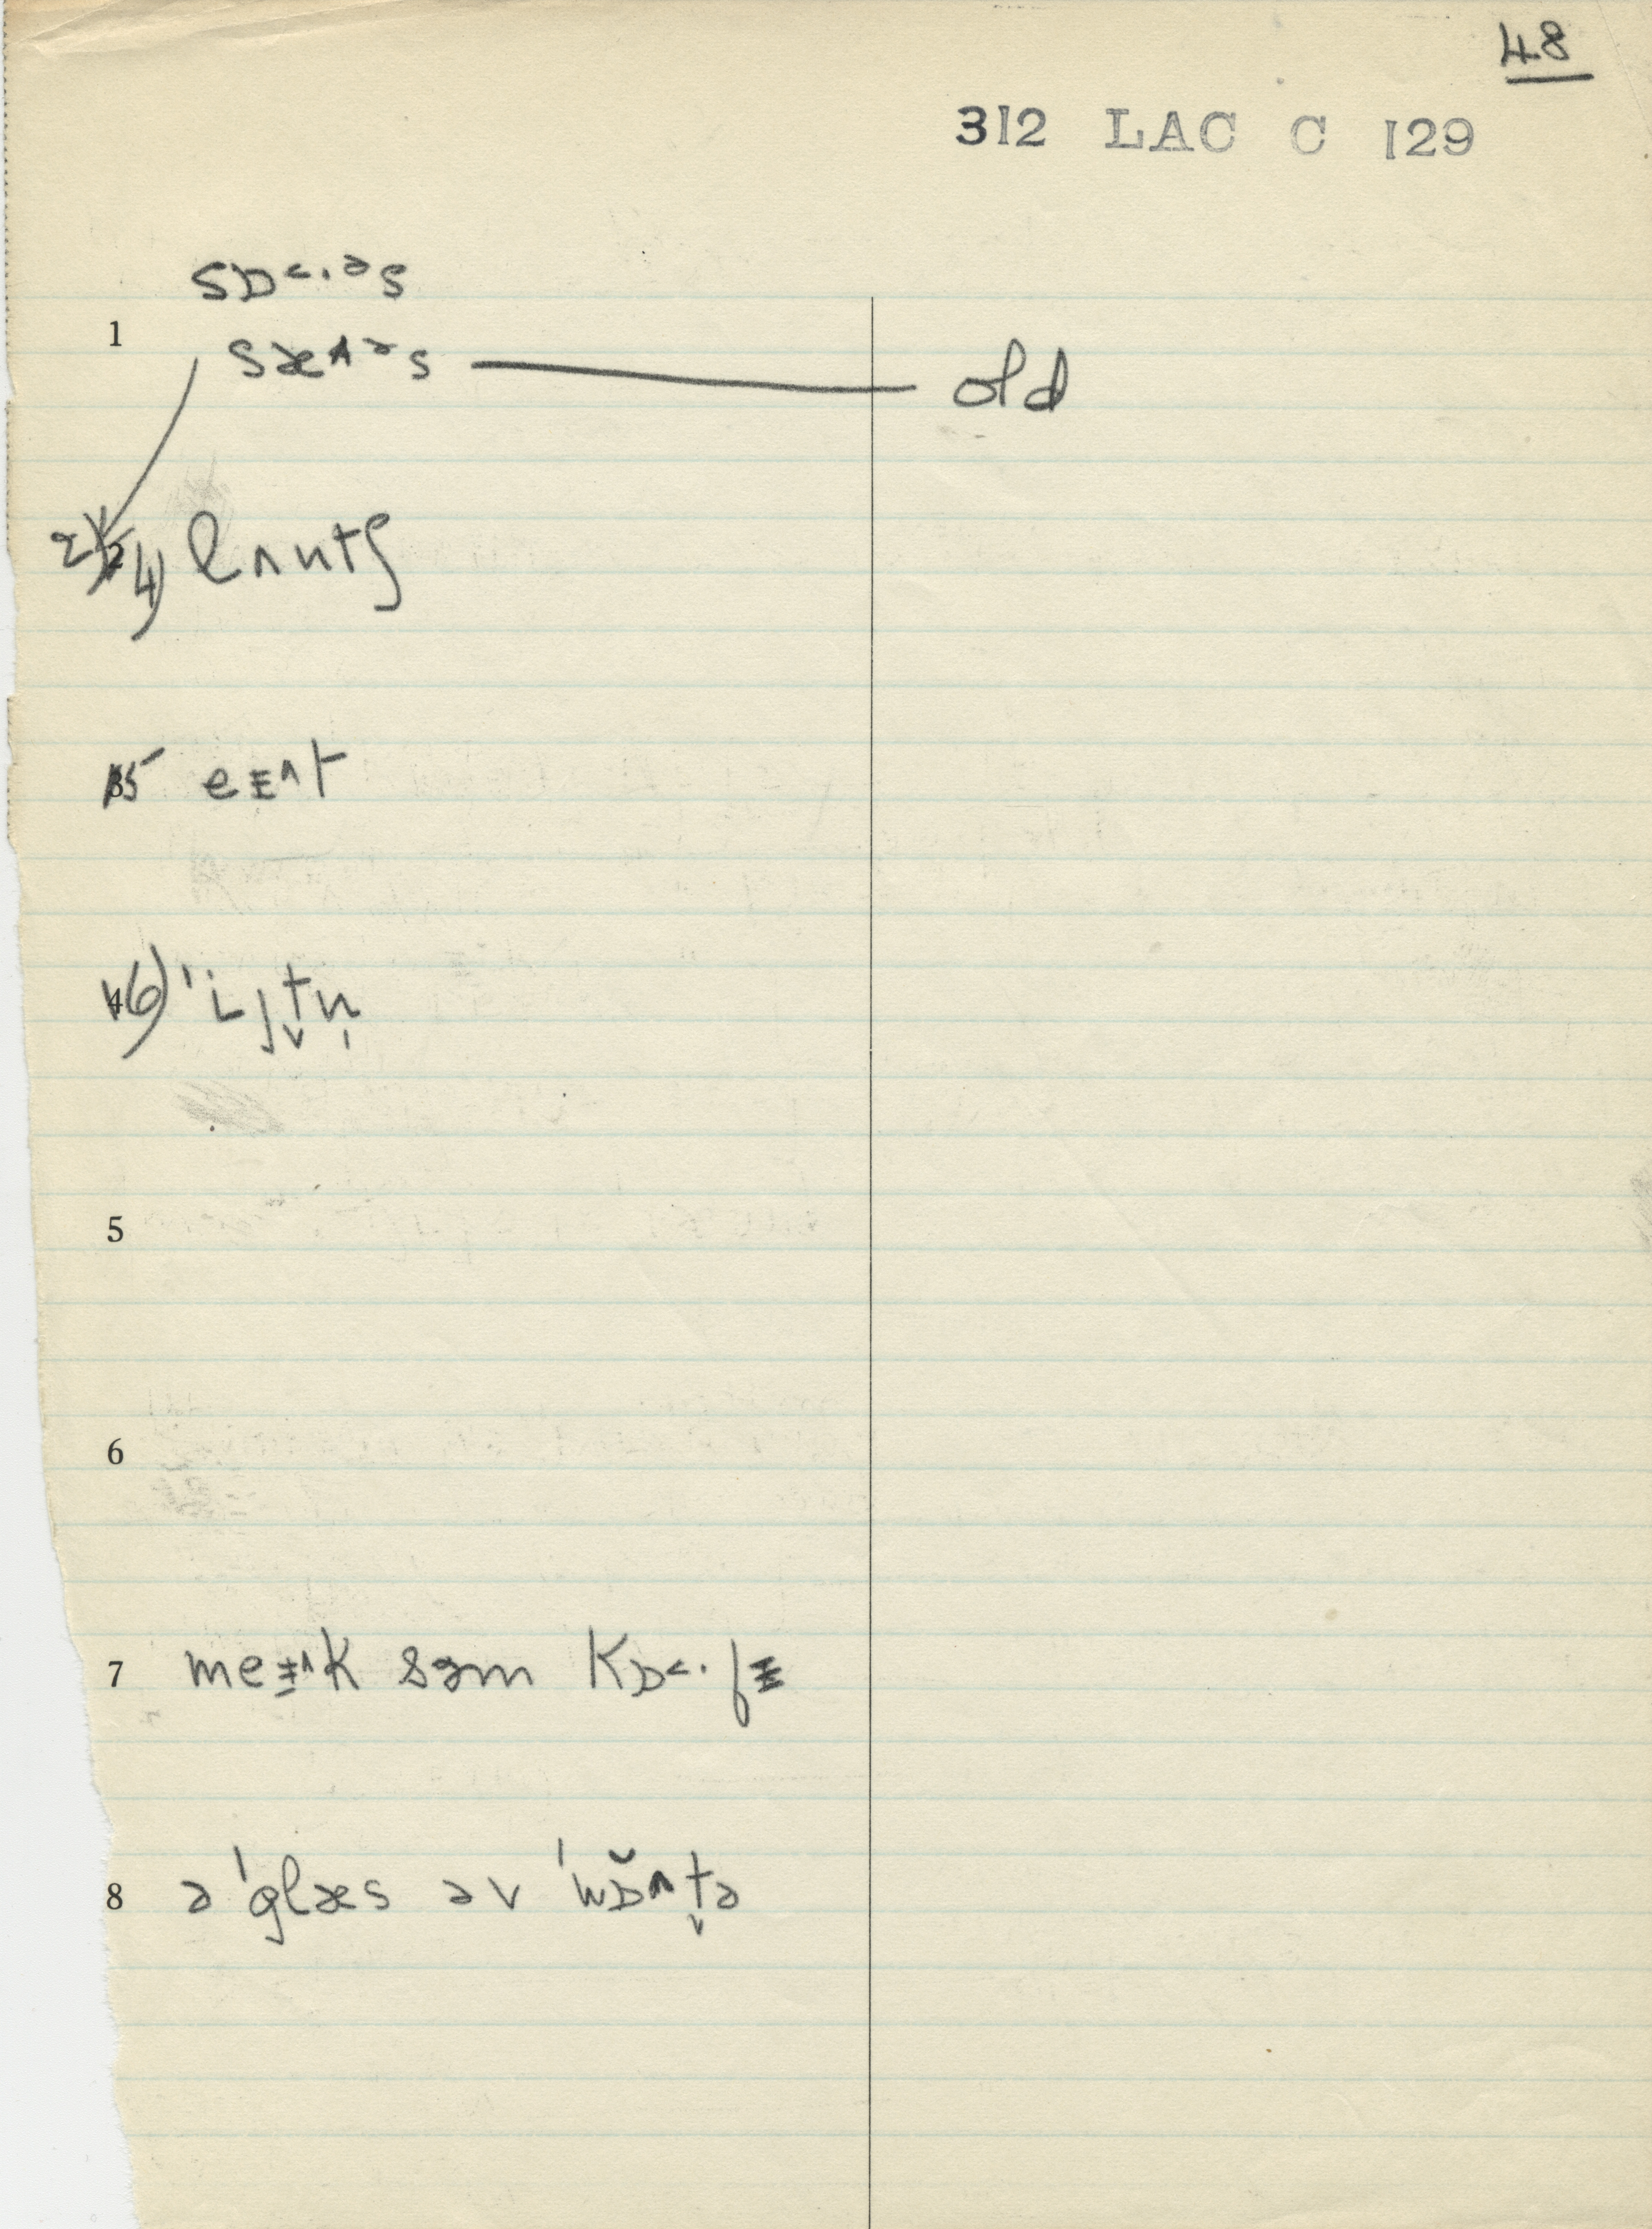 48
312 LAC C 129
sɒ˂·ᵊs
1 sæ˄ᵊs — old
2) 4) lʌntʃ
5 eɪ˄t
6) ˈiʝt̬n̩
5
6
7 meɪ˄k səm kɒ˂·fɪ
8 ə ˈglæs əv ˈwɒ̆˄t̬ə